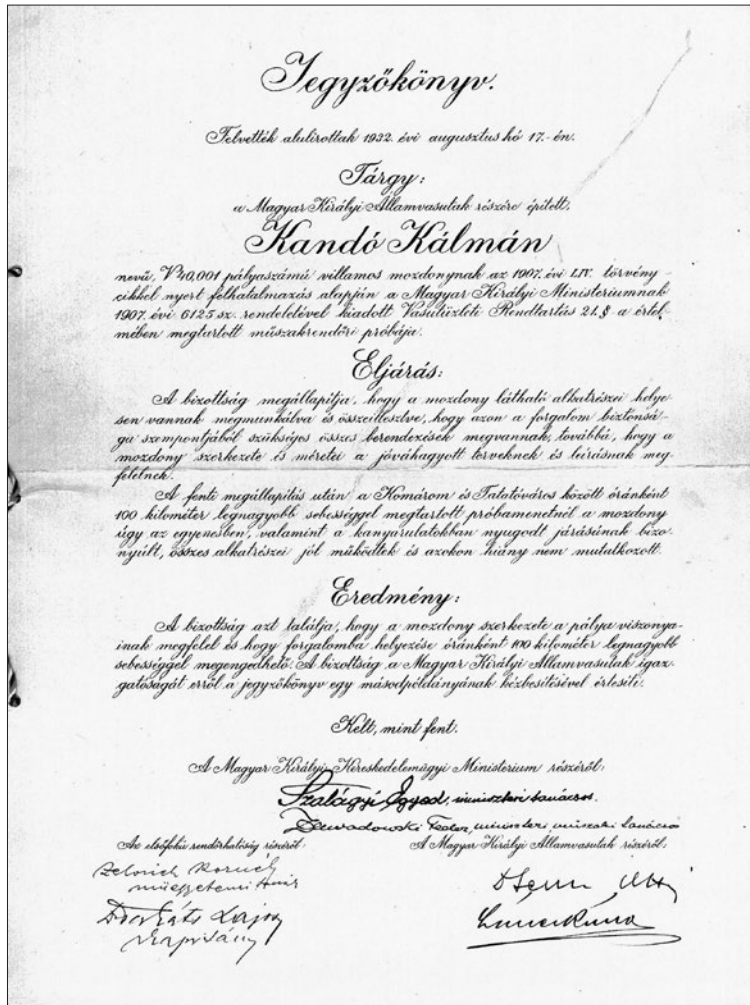 Jegyzőkönyv.
Felvették alulirottak 1932. évi augusztus hó 17.-én.
Tárgy:
a Magyar Királyi Államvasutak részére épített,
Kandó Kálmán
nevű, V40,001 pályaszámú villamos mozdonynak az 1907. évi LIV. törvény-
cikkel nyert felhatalmazás alapján a Magyar Királyi Ministeriumnak
1907. évi 6125 sz. rendeletével kiadott Vasutüzleti Rendtartás 21. §-a értel-
mében megtartott műszakrendőri próbája.
Eljárás:
A bizottság megállapítja, hogy a mozdony látható alkatrészei helye-
sen vannak megmunkálva és összeillesztve, hogy azon a forgalom biztonsá-
ga szempontjából szükséges összes berendezések megvannak, továbbá, hogy a
mozdony szerkezete és méretei a jóváhagyott terveknek és leírásnak meg-
felelnek.
A fenti megállapítás után a Komárom és Tatatóváros között óránként
100 kilométer legnagyobb sebességgel megtartott próbamenetnél a mozdony
úgy az egyenesben, valamint a kanyarulatokban nyugodt járásúnak bizo-
nyúlt, összes alkatrészei jól működtek és azokon hiány nem mutatkozott.
Eredmény:
A bizottság azt találja, hogy a mozdony szerkezete a pálya viszonya-
inak megfelel és hogy forgalomba helyezése óránként 100 kilométer legnagyobb
sebességgel megengedhető. A bizottság a Magyar Királyi Államvasutak igaz-
gatóságát erről a jegyzőkönyv egy másodpéldányának kézbesítésével értesíti.
Kelt, mint fent.
A Magyar Királyi Kereskedelemügyi Ministerium részéről:
Szalágyi Egyed, miniszteri tanácsos.
miniszteri műszaki tanácsos
Az elsőfokú rendőrhatóság részéről:
A Magyar Királyi Államvasutak részéről:
műegyetemi tanár
Lajos